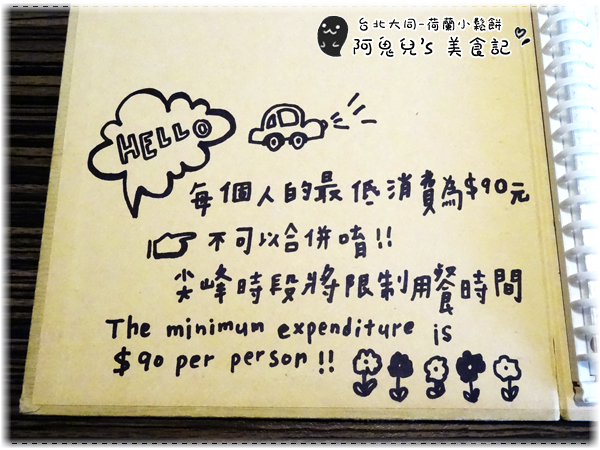 台北大同-荷蘭小鬆餅
阿鬼兒's 美食記
HELLO
每個人的最低消費為$90元
不可以合併唷!!
尖峰時段將限制用餐時間
The minimum expenditure is
$90 per person!!